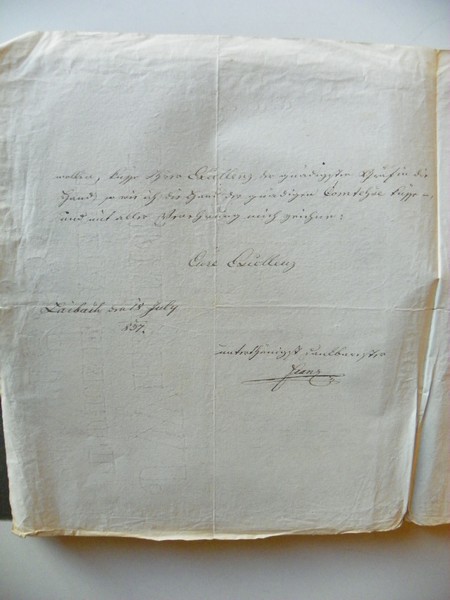 wollen, küsse Ihrer Excellenz der gnädigsten Gräfin die
Hand, so wie ich die Hand der gnädigen Comtesse küsse
und mit aller Verehrung mich zeichne:
Eure Excellenz
Laibach den 18 July
837.
unterthänigst dankbarster